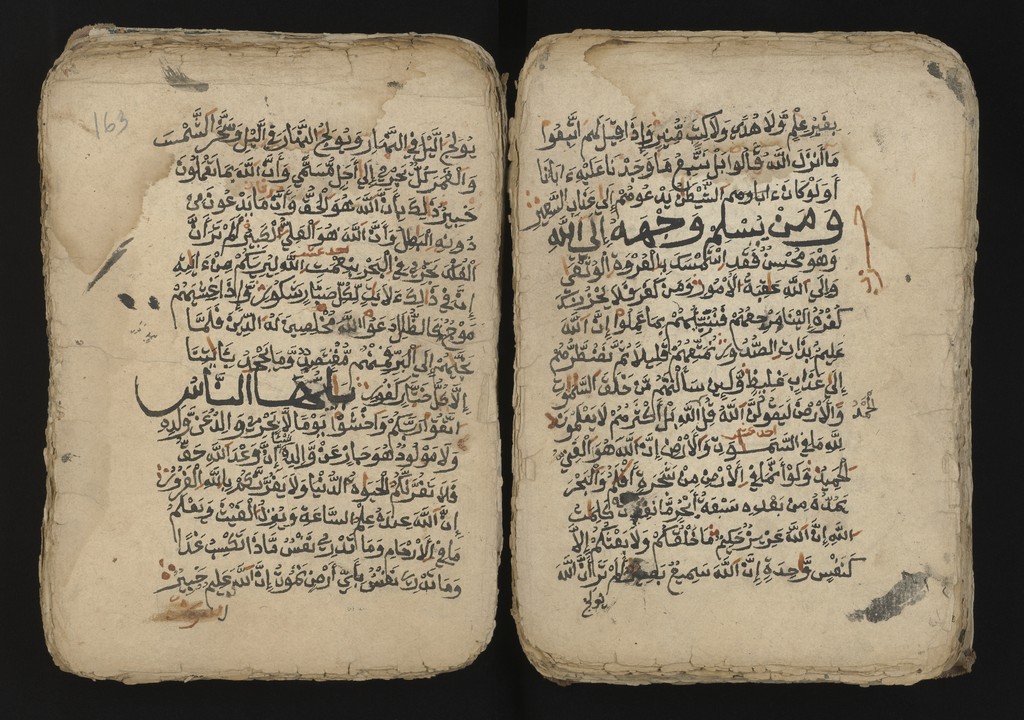 بغير علم ولا هدى ولا كتب منير وإذا قيل لهم اتبعوا
ما أنزل الله قالوا بل نتبع ما وجدنا عليه ءاباءنا
أولو كان ءاباوهم الشيطن يدعوهم إلى عذاب السعير
ومن يسلم وجهه إلى الله
وهو محسن فقد استمسك بالعروة الوثقى
وإلى الله عقبة الأمور ومن كفر فلا يحزنك
كفره إلينا مرجعهم فننبئهم بما عملوا إن الله
عليم بذات الصدور نمتعهم قليلا ثم نضطرهم
إلى عذاب غليظ ولئن سألتهم من خلق السموت
والأرض ليقولن الله قل الله بل أكثرهم لا يعلمون
لله ما في السموت والأرض إن الله هو الغني
الحميد ولو أنما في الأرض من شجرة أقلم والبحر
يمده من بعده سبعة أبحر ما نفدت كلمت
الله إن الله عزيز حكيم ما خلقكم ولا بعثكم إلا
كنفس وحدة إن الله سميع بصير ألم تر أن الله
يولج
163
يولج اليل في النهار ويولج النهار في اليل وسخر الشمس
والقمر كل يجري إلى أجل مسمى وأن الله بما تعملون
خبير ذلك بأن الله هو الحق وأن ما يدعون من
دونه البطل وأن الله هو العلي الكبير ألم تر أن
الفلك تجري في البحر بنعمت الله ليريكم من ءايته
إن في ذلك لأيت لكل صبار شكور وإذا غشيهم
موج كالظلل دعوا الله مخلصين له الدين فلما
نجيهم إلى البر فمنهم مقتصد وما يجحد بئايتنا
إلا كل ختار كفور يأيها الناس
اتقوا ربكم واخشوا يوما لا يجزي والد عن ولده
ولا مولود هو جاز عن والده إن وعد الله حق
فلا تغرنكم الحيوة الدنيا ولا يغرنكم بالله الغرور
إن الله عنده علم الساعة وينزل الغيث ويعلم
ما في الأرحام وما تدري نفس ماذا تكسب غدا
وما تدري نفس بأي أرض تموت إن الله عليم خبير